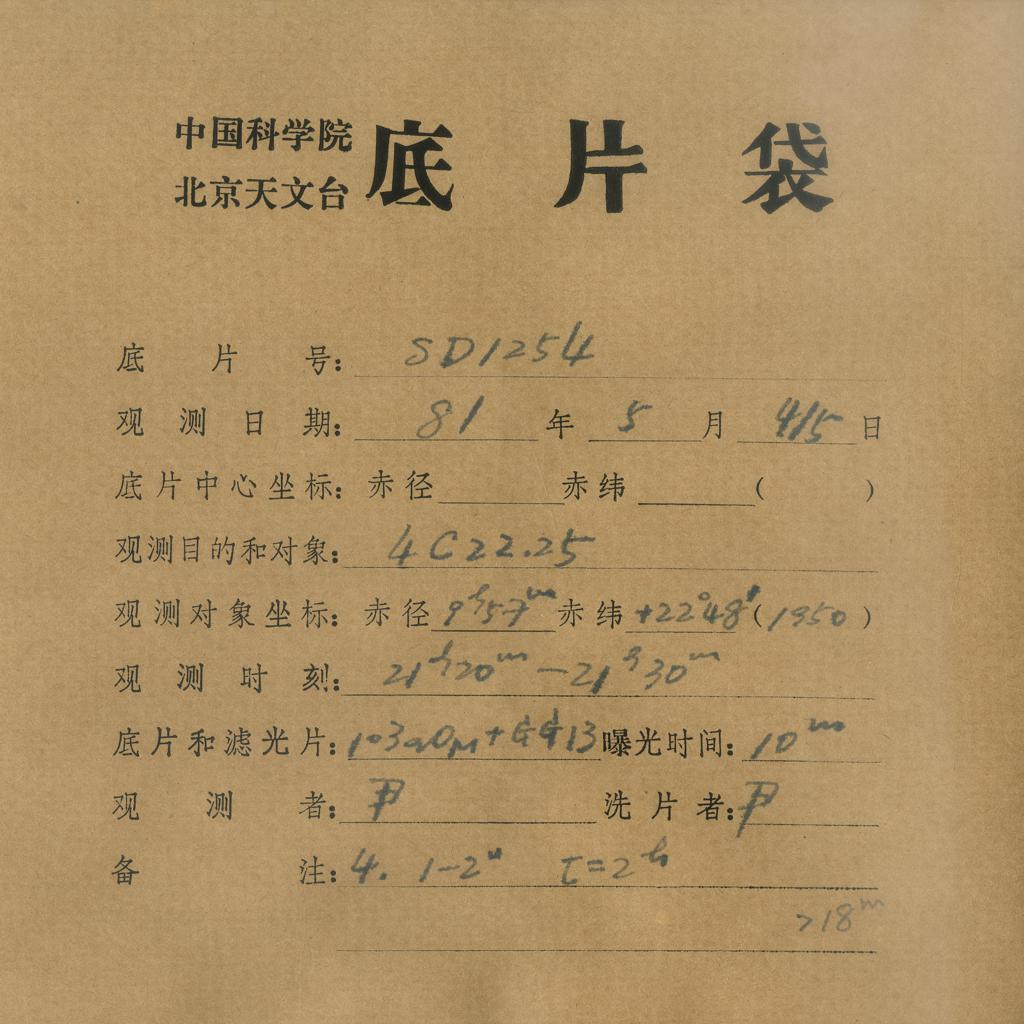 中国科学院
北京天文台
底片袋
底片号: SD1254
观测日期: 81年5月4/5日
底片中心坐标: 赤径 赤纬 ( )
观测目的和对象: 4C22.25
观测对象坐标: 赤径 9h57m 赤纬 +22°48' (1950)
观测时刻: 21h20m—21h30m
底片和滤光片: 103aO + GG13 曝光时间: 10m
观测者: 尹 洗片者: 尹
备注: 4. 1-2" t=2h
>18m